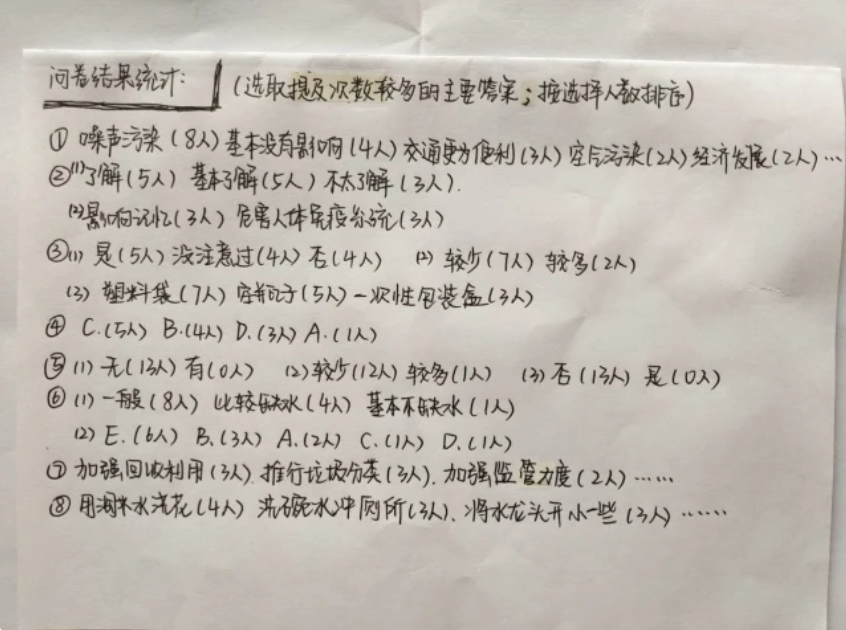 问卷结果统计: (选取提及次数较多的主要答案;按选择人数排序)
① 噪声污染(8人) 基本没有影响(4人) 交通更方便利(3人) 空气污染(2人) 经济发展(2人)…
②(1)了解(5人) 基本了解(5人) 不太了解(3人).
(2)影响记忆(3人) 危害人体免疫系统(3人)
③(1) 是(5人) 没注意过(4人) 否(4人) (2) 较少(7人) 较多(2人)
(3) 塑料袋(7人) 空瓶子(5人) 一次性包装盒(3人)
④ C.(5人) B.(4人) D.(3人) A.(1人)
⑤(1) 无(13人) 有(0人) (2)较少(12人) 较多(1人) (3) 否(13人) 是(0人)
⑥(1) 一般(8人) 比较缺水(4人) 基本不缺水(1人)
(2) E.(6人) B.(3人) A.(2人) C.(1人) D.(1人)
⑦ 加强回收利用(3人). 推行垃圾分类(3人). 加强监管力度(2人)……
⑧ 用淘米水浇花(4人) 洗碗水冲厕所(3人). 将水龙头开小一些(3人)……